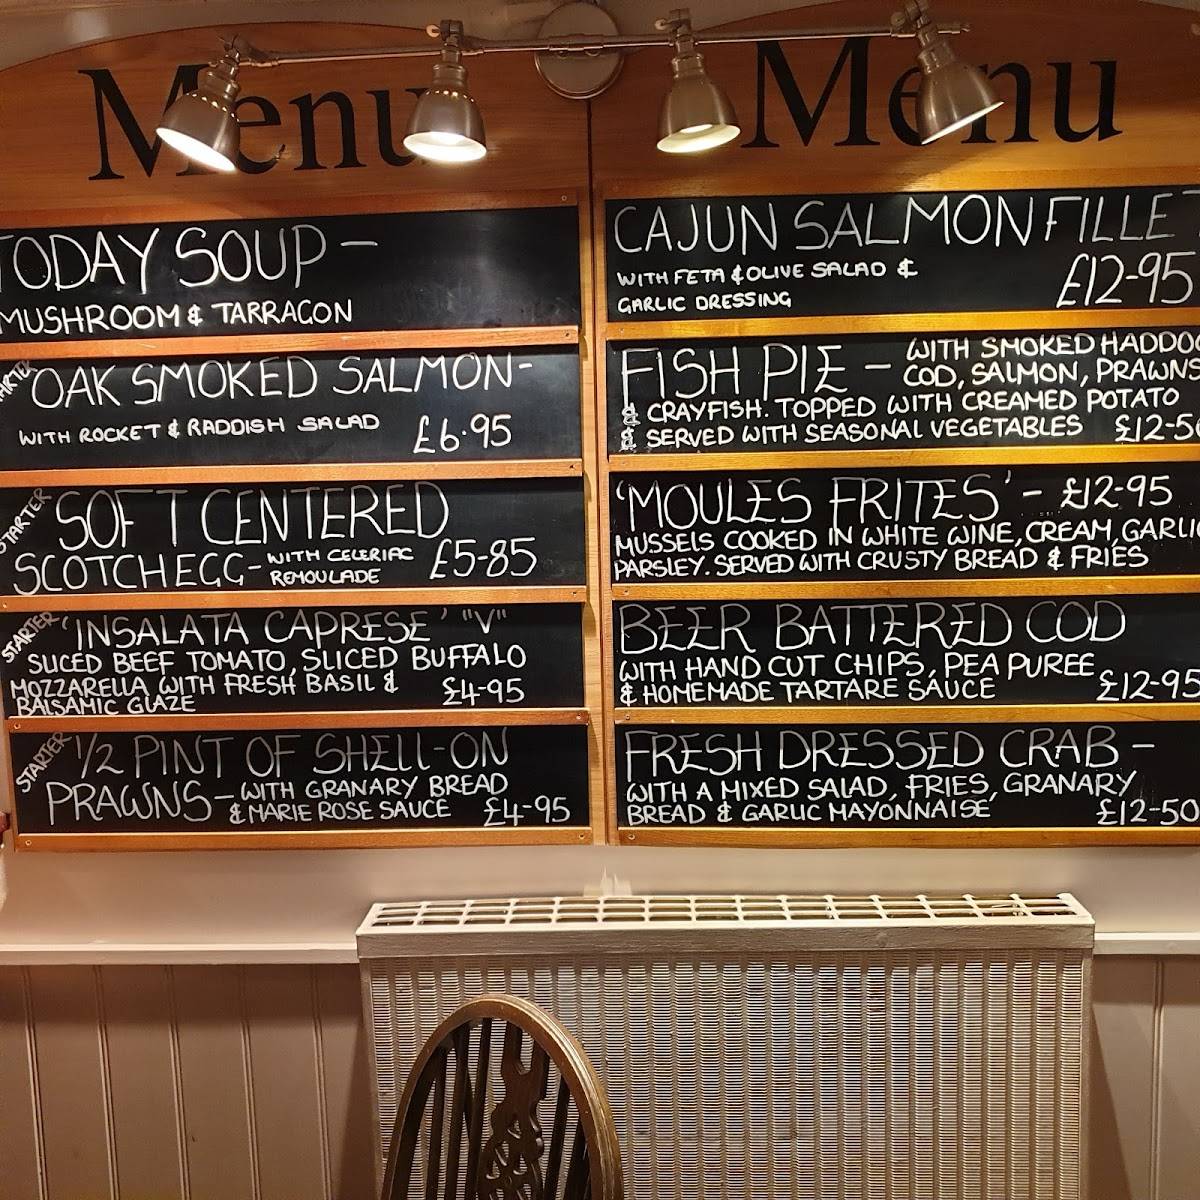 Menu
TODAY SOUP -
MUSHROOM & TARRAGON
STARTER
OAK SMOKED SALMON -
WITH ROCKET & RADDISH SALAD £6.95
STARTER
SOFT CENTERED
SCOTCH EGG - WITH CELERIAC
REMOULADE £5-85
STARTER
'INSALATA CAPRESE' "V"
SLICED BEEF TOMATO, SLICED BUFFALO
MOZZARELLA WITH FRESH BASIL &
BALSAMIC GLAZE £4-95
STARTER
1/2 PINT OF SHELL-ON
PRAWNS - WITH GRANARY BREAD
& MARIE ROSE SAUCE £4-95
Menu
CAJUN SALMON FILLET
WITH FETA & OLIVE SALAD &
GARLIC DRESSING £12-95
FISH PIE - WITH SMOKED HADDO
COD, SALMON, PRAWNS
& CRAYFISH. TOPPED WITH CREAMED POTATO
& SERVED WITH SEASONAL VEGETABLES £12-50
'MOULES FRITES' - £12-95
MUSSELS COOKED IN WHITE WINE, CREAM, GARLIC
PARSLEY. SERVED WITH CRUSTY BREAD & FRIES
BEER BATTERED COD
WITH HAND CUT CHIPS, PEA PUREE
& HOMEMADE TARTARE SAUCE £12-95
FRESH DRESSED CRAB -
WITH A MIXED SALAD, FRIES, GRANARY
BREAD & GARLIC MAYONNAISE £12-50